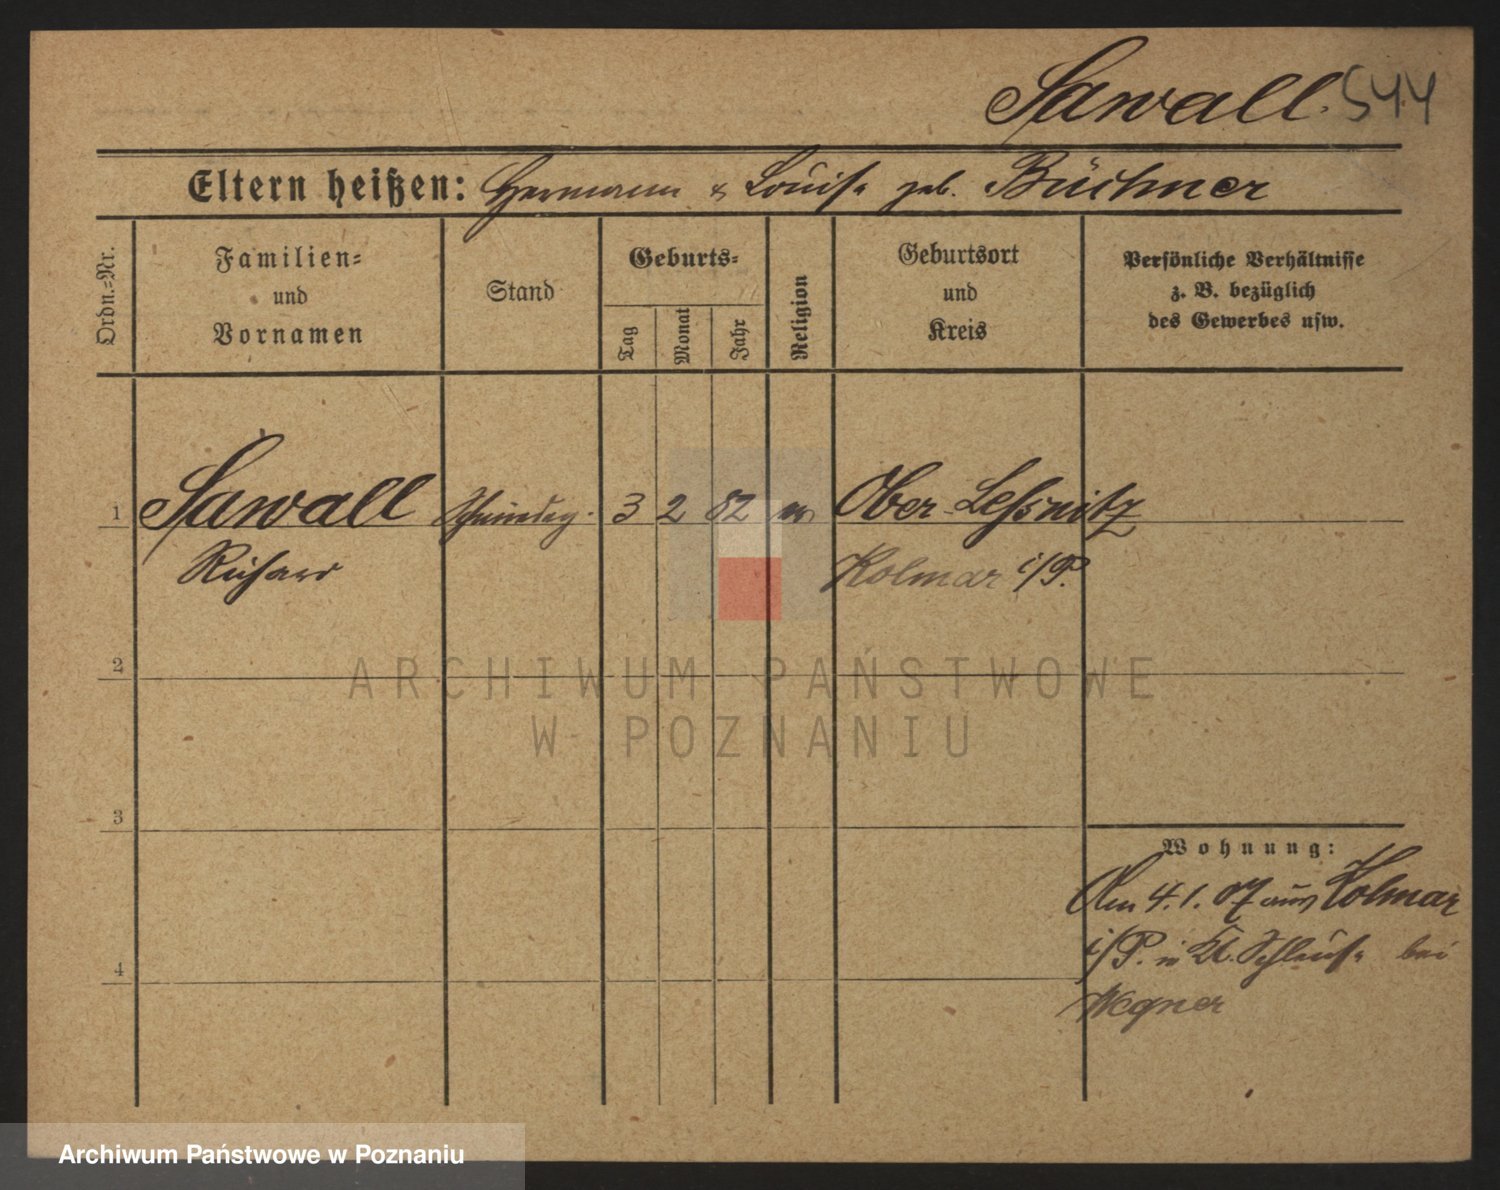 Sawall. 544
Eltern heißen: Hermann & Louise geb. Büchner
Ordn.-Nr.
Familien-
und
Vornamen
Stand
Geburts-
Tag
Monat
Jahr
Religion
Geburtsort
und
Kreis
Persönliche Verhältnisse
z. B. bezüglich
des Gewerbes usw.
1 Sawall 3 2 82 Ober-Lessnitz
Richard Kolmar i/P.
2
3
4
Wohnung:
Am 4.1.07 aus Kolmar
i/P. in Kl. Schleuse bei
Wegner
ARCHIWUM PAŃSTWOWE
W POZNANIU
Archiwum Państwowe w Poznaniu